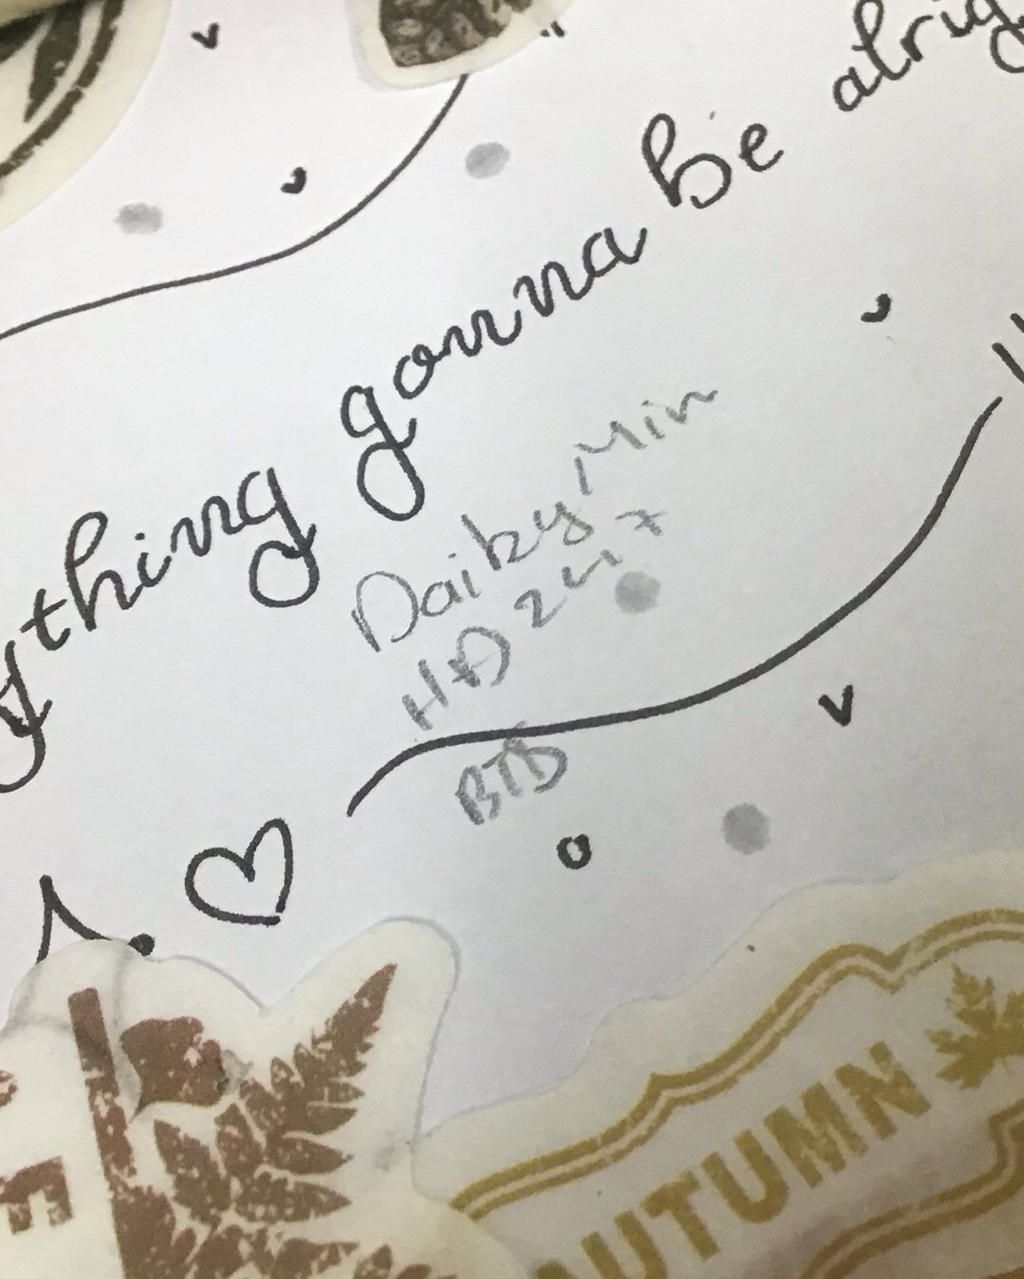 ything gonna be alrig
DaibyMin
HD 24x
BTB
AUTUMN